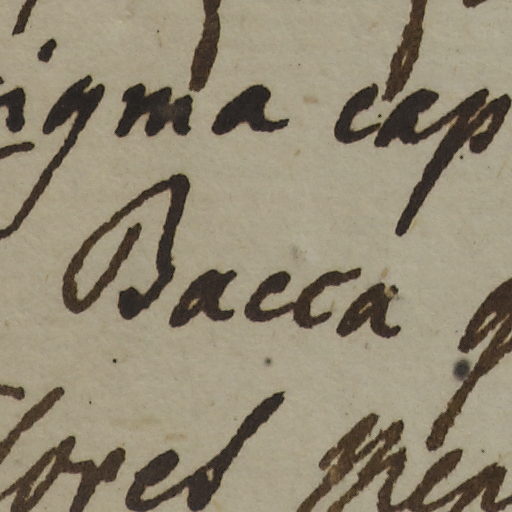 igma cap
Bacca g
lores Men